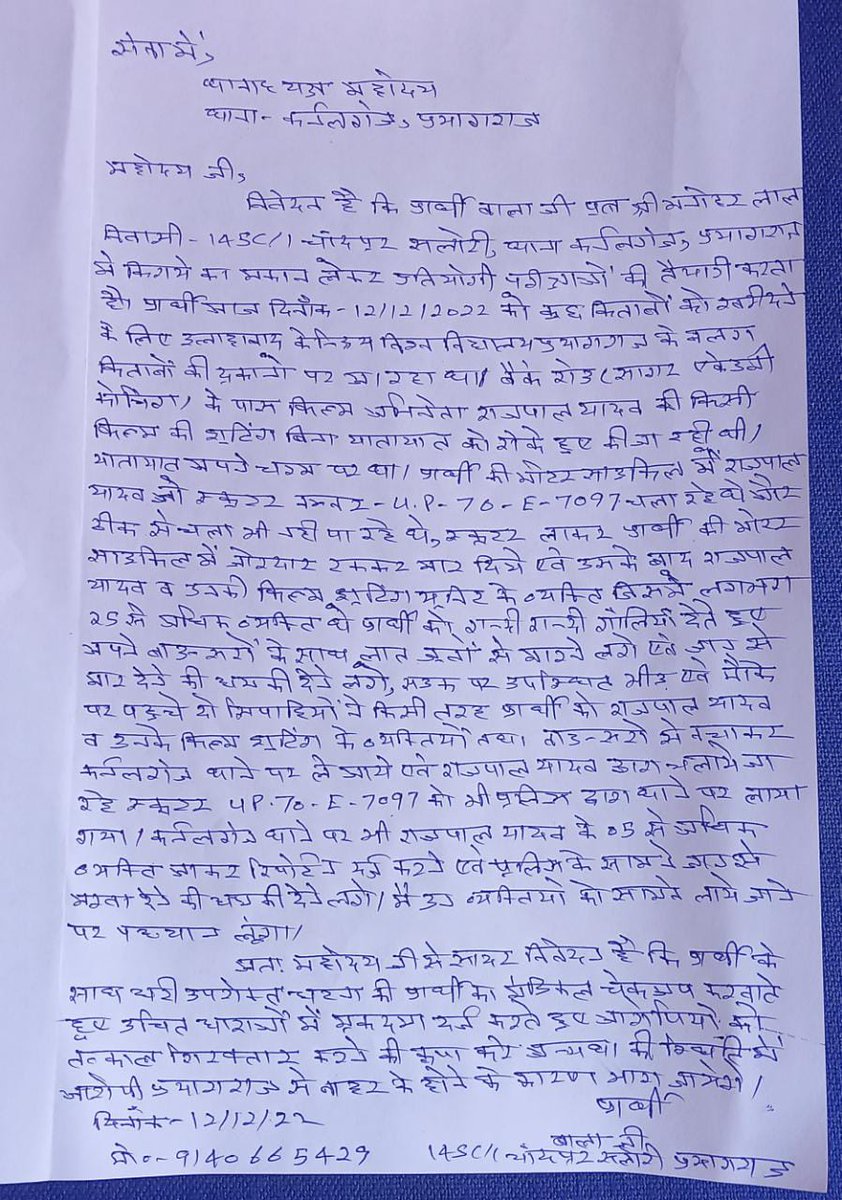 सेवा में,
थानाध्यक्ष महोदय
थाना- कर्नलगंज, प्रयागराज
महोदय जी,
निवेदन है कि प्रार्थी बाला जी पुत्र श्री मनोहर लाल
निवासी - 14SC/1 चाँदपुर सलोरी, थाना कर्नलगंज, प्रयागराज
में किराये का मकान लेकर प्रतियोगी परीक्षाओं की तैयारी करता
है। प्रार्थी आज दिनाँक - 12/12/2022 को कुछ किताबों को खरीदने
के लिए इलाहाबाद केन्द्रिय विश्व विद्यालय प्रयागराज के बगल
किताबों की दुकानों पर जा रहा था। बैंक रोड (सागर एकेडमी
कोचिंग) के पास फिल्म अभिनेता राजपाल यादव की किसी
फिल्म की शूटिंग बिना यातायात को रोके हुए की जा रही थी।
यातायात अपने चरम पर था। प्रार्थी की मोटर साइकिल में राजपाल
यादव जो स्कूटर नम्बर - U.P-70-E-7097 चला रहे थे और
ठीक से चला भी नहीं पा रहे थे, स्कूटर लाकर प्रार्थी की मोटर
साइकिल में जोरदार टक्कर मार दिये एवं उसके बाद राजपाल
यादव व उनकी फिल्म शूटिंग यूनिट के व्यक्ति जिसमें लगभग
25 से अधिक व्यक्ति थे प्रार्थी को गन्दी गन्दी गालियाँ देते हुए
अपने बाउन्सरों के साथ लात जूतों से मारने लगे एवं जान से
मार देने की धमकी देने लगे, सड़क पर उपस्थित भीड़ एवं मौके
पर पहुचे दो सिपाहियों ने किसी तरह प्रार्थी को राजपाल यादव
व उनके फिल्म शूटिंग के व्यक्तियों तथा बाउन्सरों से बचाकर
कर्नलगंज थाने पर ले आये एवं राजपाल यादव द्वारा चलाये जा
रहे स्कूटर UP-70-E-7097 को भी पुलिस द्वारा थाने पर लाया
गया। कर्नलगंज थाने पर भी राजपाल यादव के 05 से अधिक
व्यक्ति आकर रिपोर्ट दर्ज करने एवं पुलिस के सामने जान से
मरवा देने की धमकी देने लगे। मैं उन व्यक्तियों को सामने लाये जाने
पर पहचान लूंगा।
अतः महोदय जी से सादर निवेदन है कि प्रार्थी के
साथ घटी उपरोक्त घटना की प्रार्थी का मेडिकल चेकअप करवाते
हुए उचित धाराओं में मुकदमा दर्ज करते हुए आरोपियों को
तत्काल गिरफ्तार करने की कृपा करें अन्यथा की स्थिति में
आरोपी प्रयागराज से बाहर के होने के कारण भाग जायेंगे।
प्रार्थी
दिनाँक- 12/12/22
बाला जी,
मो०- 9140665429 14SC/1 चाँदपुर सलोरी प्रयागराज